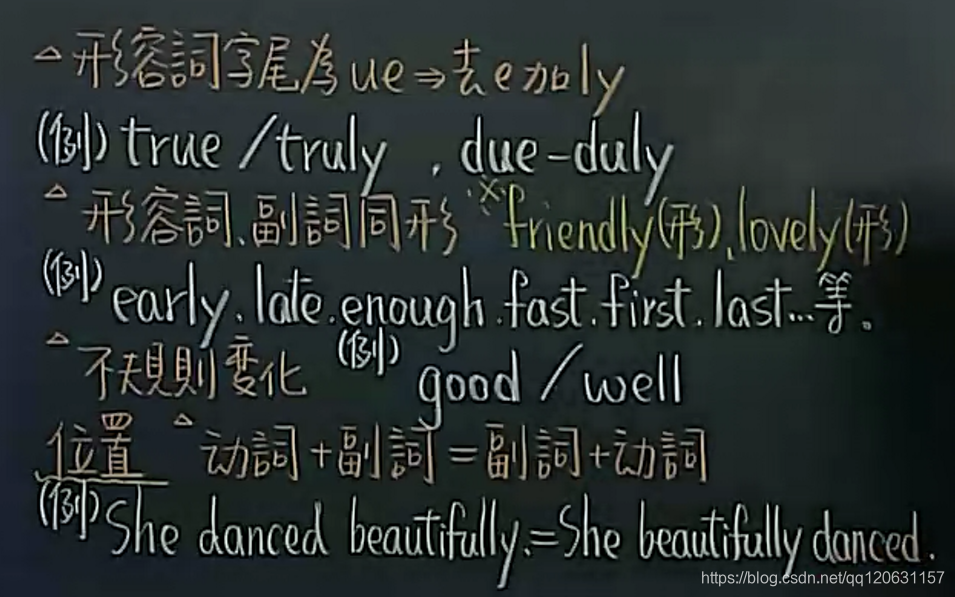 △形容詞字尾為ue⇒去e加ly
(例) true /truly , due-duly
△ 形容詞、副詞同形 ※friendly(形)、lovely(形)
(例) early、late、enough、fast、first、last…等。
△不規則变化 (例) good / well
位置 △动詞+副詞=副詞+动詞
(例) She danced beautifully.=She beautifully danced.
https://blog.csdn.net/qq120631157